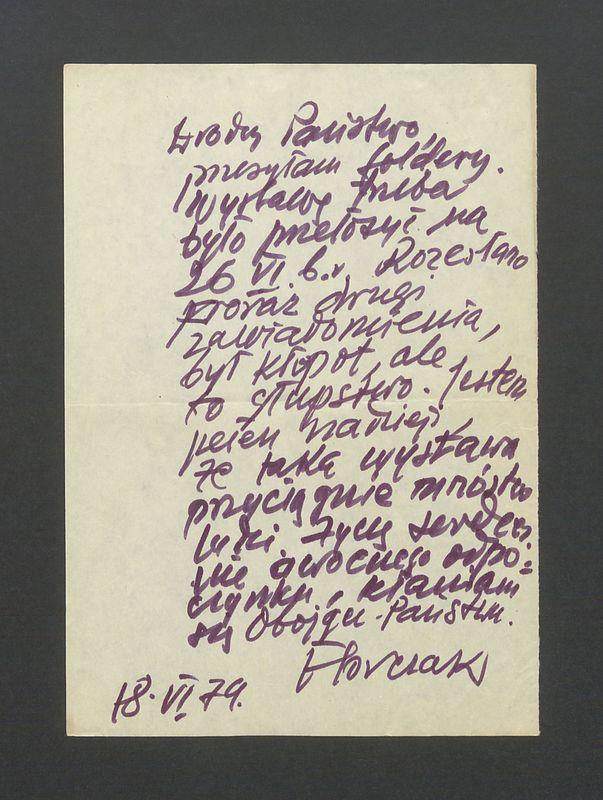 Drodzy Państwo,
przesyłam foldery.
Wystawę trzeba
było przełożyć na
26 VI. b.r. Rozesłano
poraz drugi
zawiadomienia,
był kłopot, ale
to głupstwo. Jestem
pełen nadziei,
że taka wystawa
przyciągnie mnóstwo
ludzi. Życzę serdecz
nie owocnego odpo=
czynku, kłaniam
się Obojgu Państwu.
18. VI. 79.